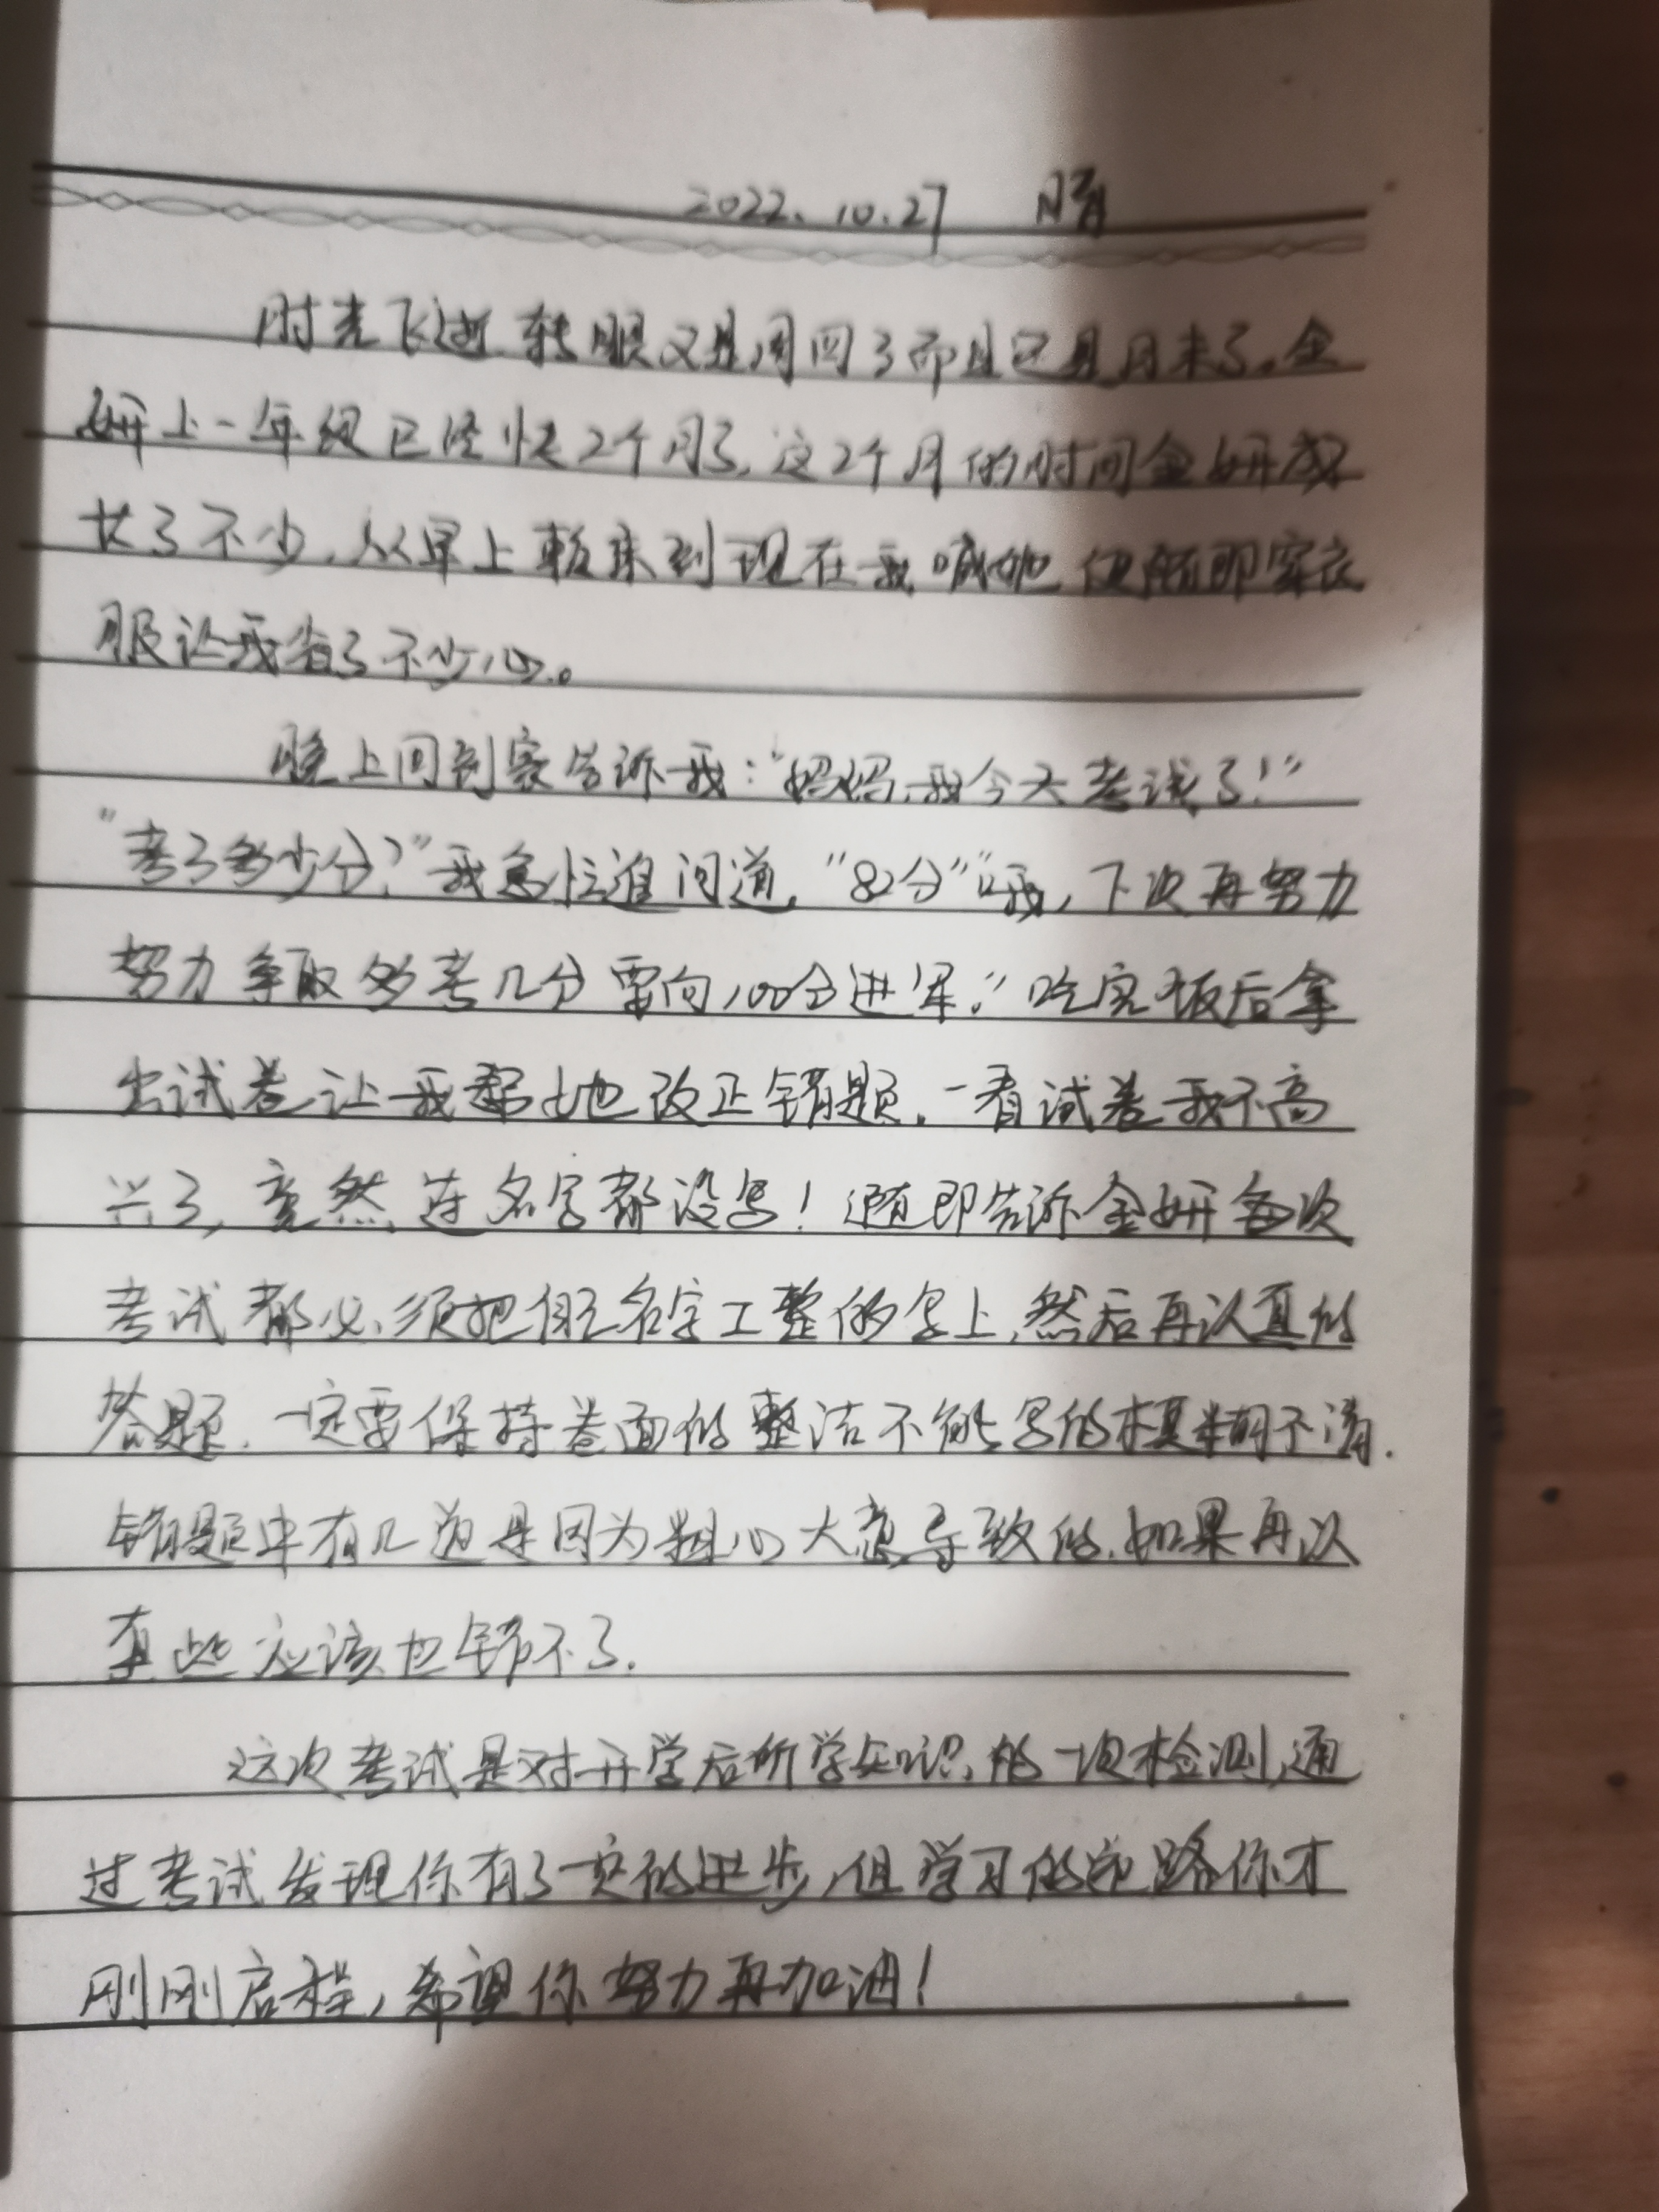 2022.10.27 晴
时光飞逝,转眼又是周四了而且还是月末了。金
妍上一年级已经快2个月了,这2个月的时间金妍成
长了不少,从早上赖床到现在我喊她便随即穿衣
服让我省了不少心。
晚上回到家告诉我:“妈妈,我今天考试了!”
“考了多少分?”我急忙追问道,“82分”“哦,下次再努力
努力争取多考几分要向100分进军。”吃完饭后拿
出试卷让我帮她改正错题,一看试卷我不高
兴了,竟然连名字都没写!随即告诉金妍每次
考试都必须把自己名字工整的写上,然后再认真的
答题,一定要保持卷面的整洁不能写的模糊不清.
错题中有几道是因为粗心大意导致的,如果再认
真些应该也错不了.
这次考试是对开学后所学知识的一次检测,通
过考试发现你有了一定的进步,但学习的道路你才
刚刚启程,希望你努力再加油!